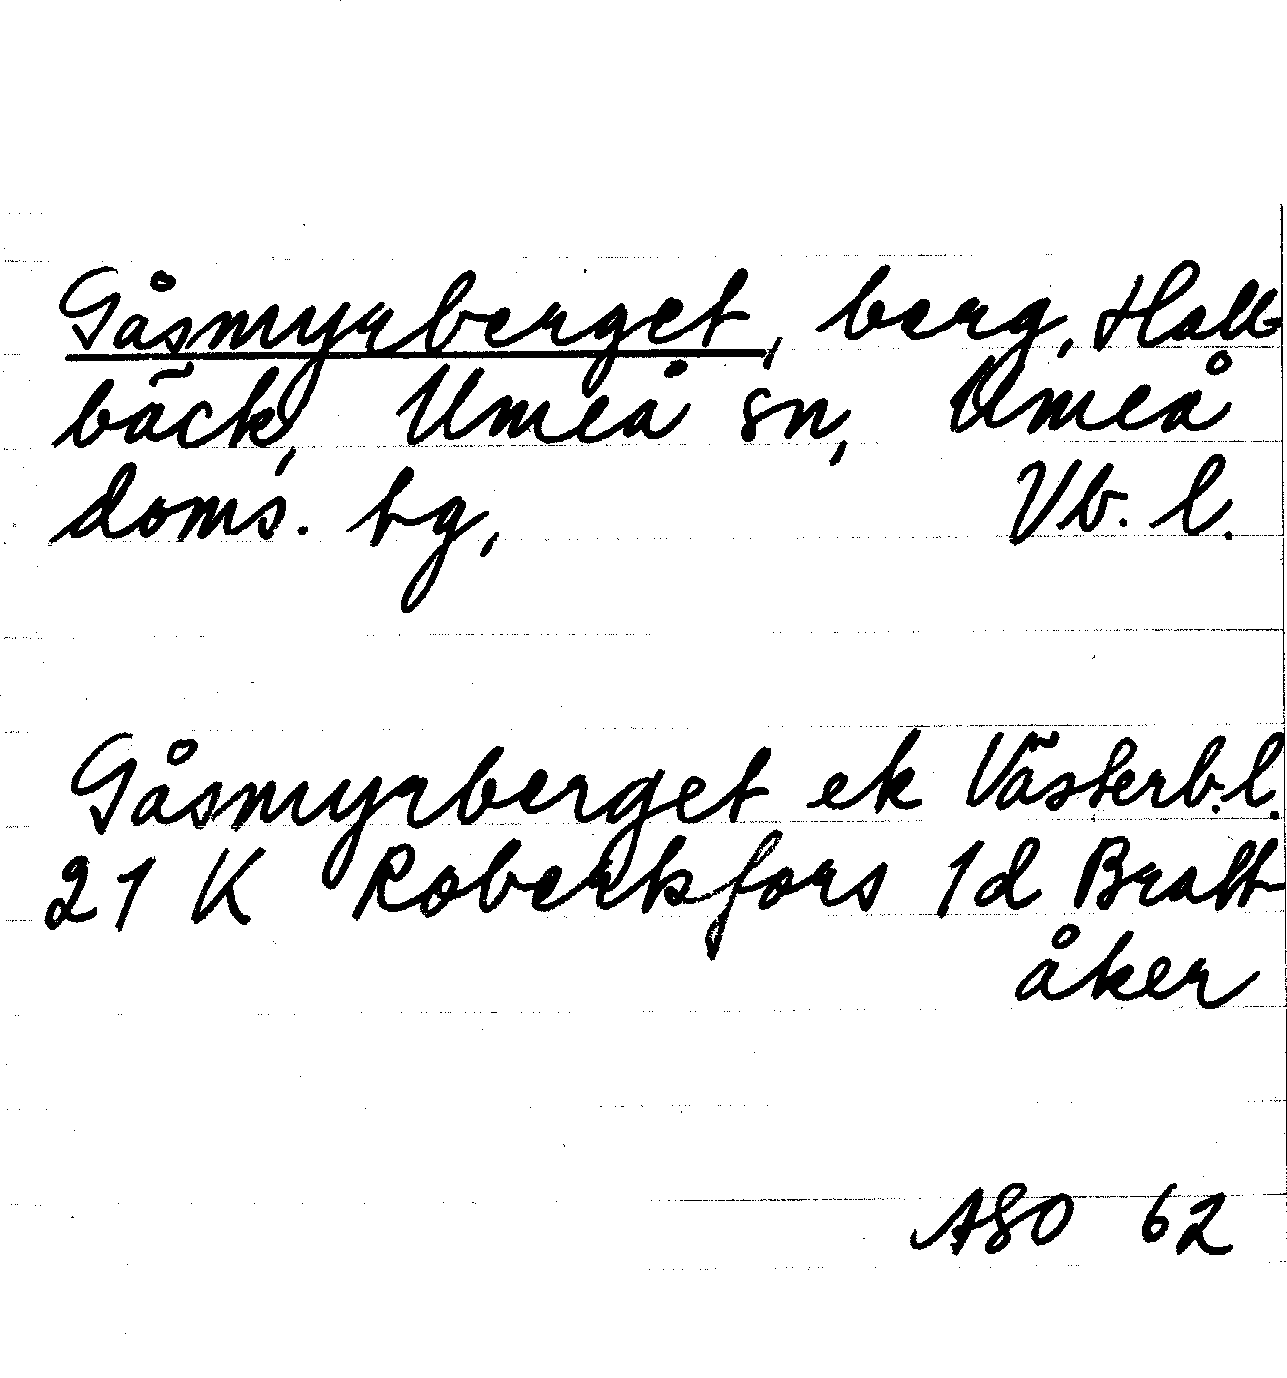 Gåsmyrberget, berg, Hall-
bäck, Umeå sn, Umeå
doms. tg, Vb. l.
Gåsmyrberget ek Västerb. l.
21 K Robertsfors 1d Bratt-
åker
ASO 62